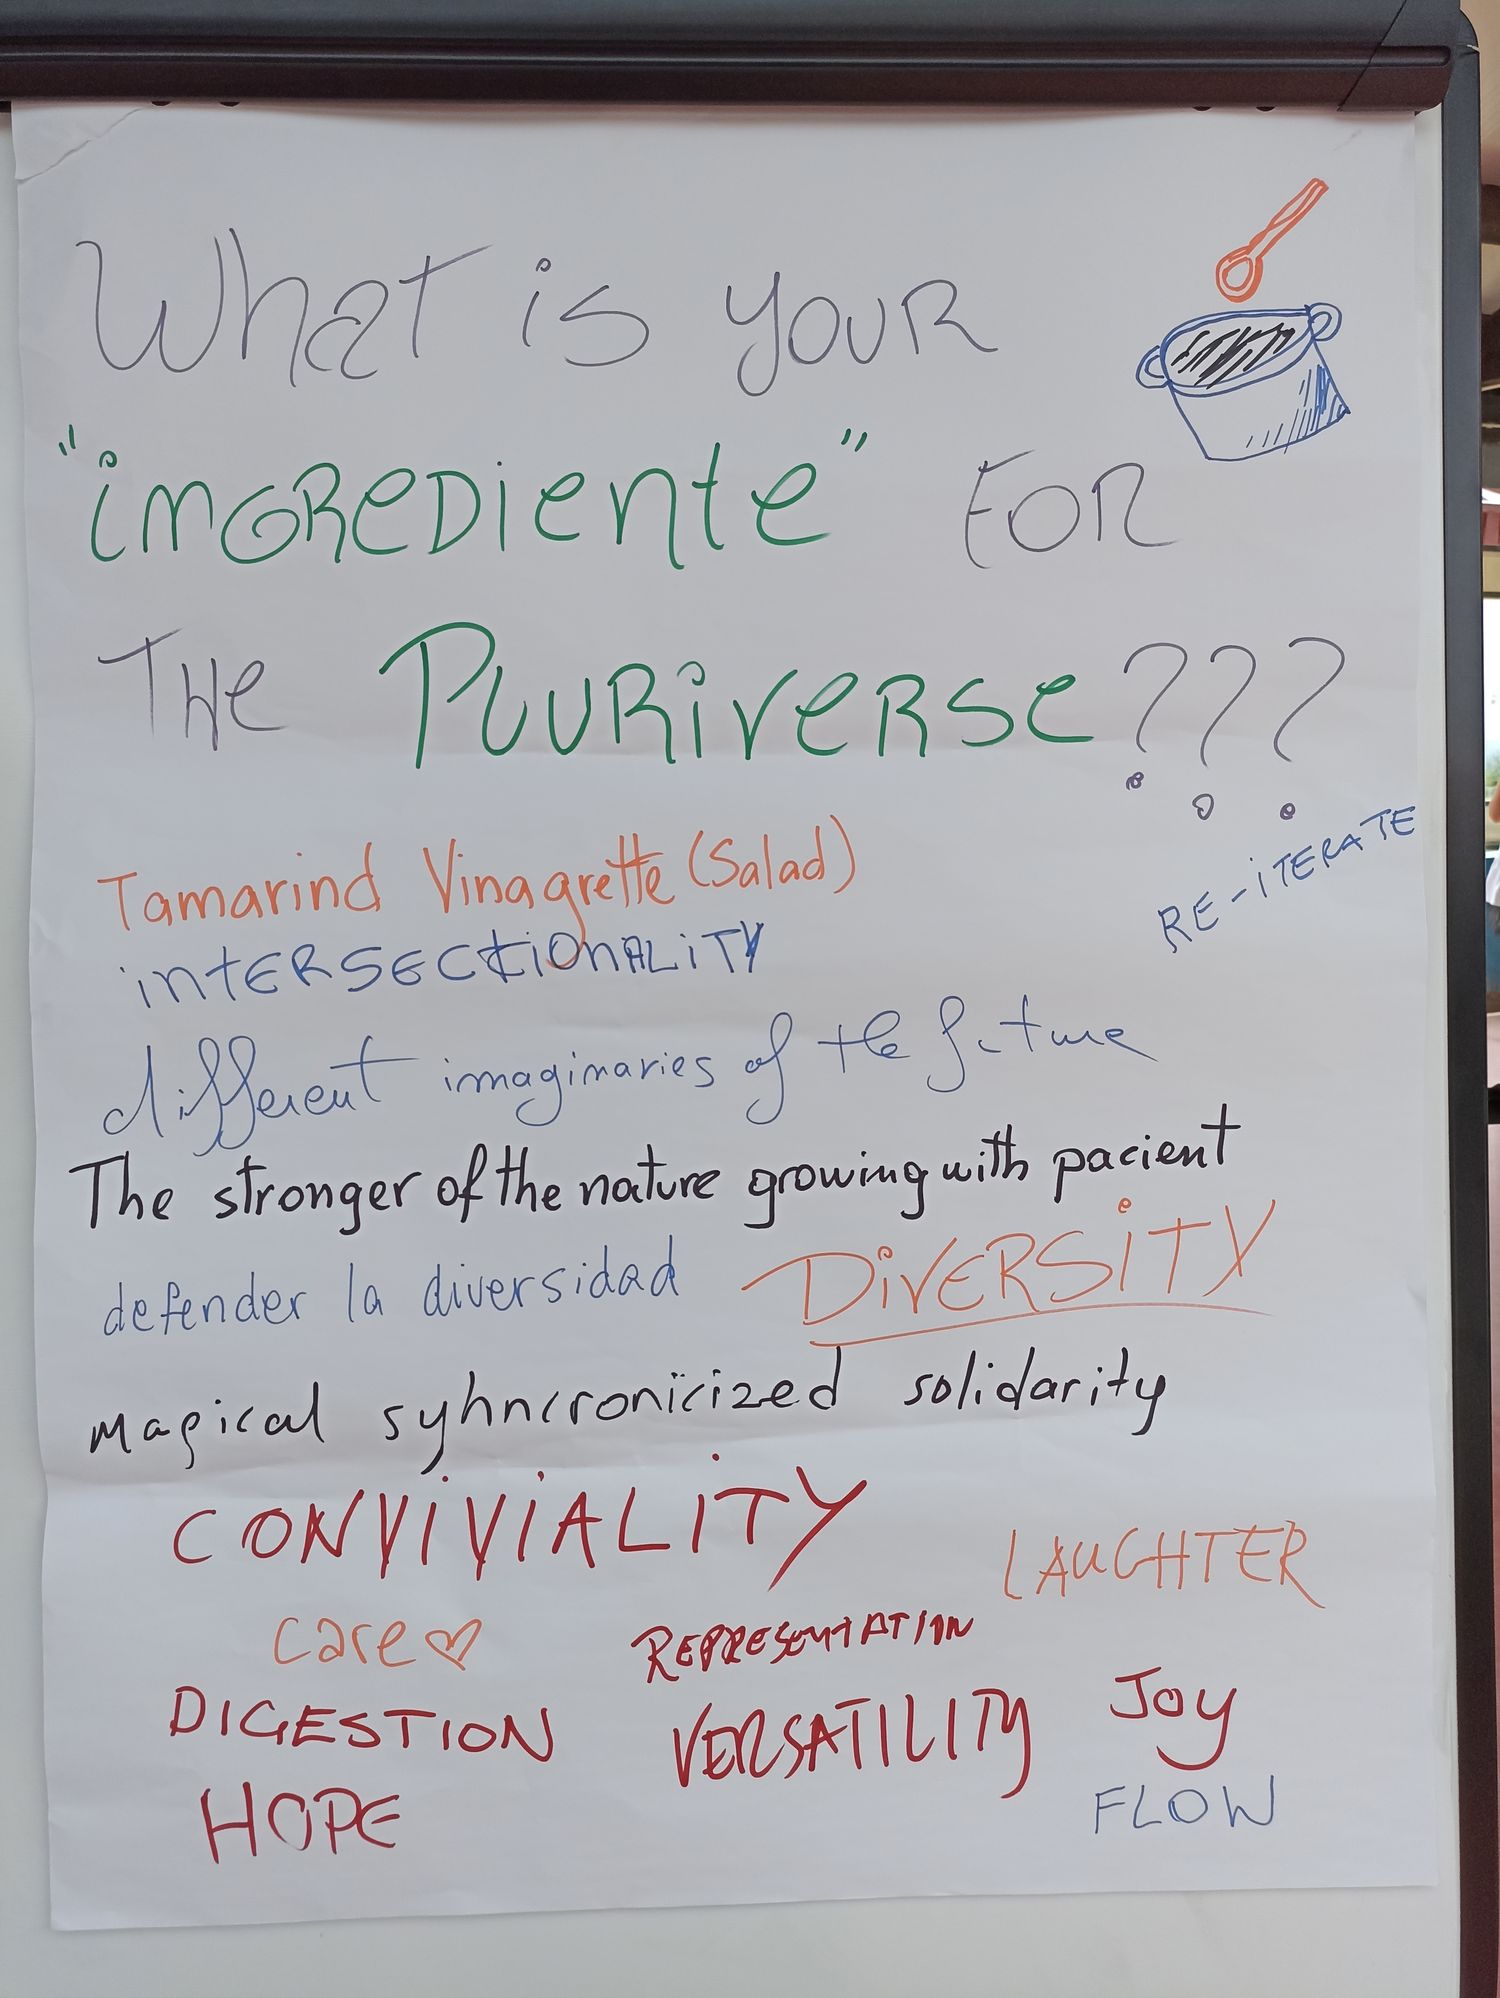 What is your
"ingrediente" FOR
THE PLURIVERSE???
RE-ITERATE
Tamarind Vinagrette (Salad)
intERSECtionALiTY
different imaginaries of the future
The stronger of the nature growing with pacient
defender la diversidad
DiVERSiTY
magical syhncronicized solidarity
CONViViALiTY
LAUGHTER
care ♡
REPRESENTATION
DIGESTION
VERSATILITY
Joy
HOPE
FLOW